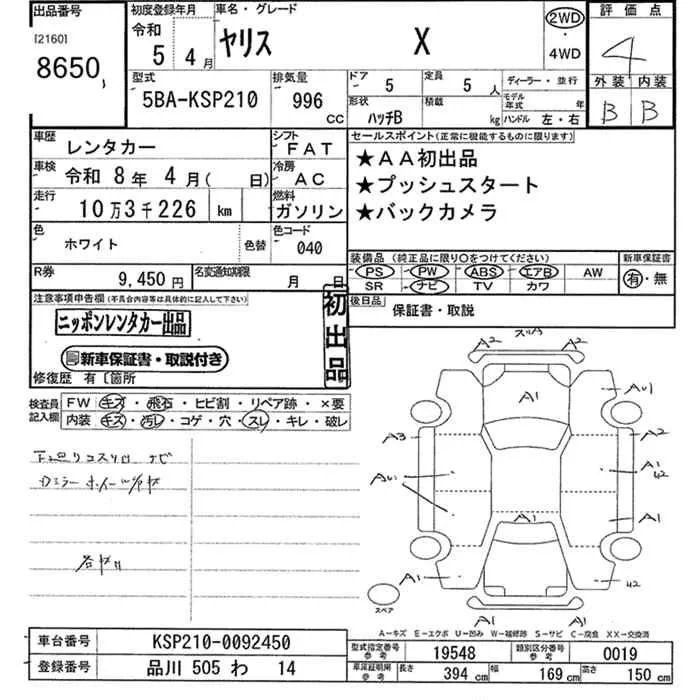 出品番号 初度登録年月 車名・グレード 評価点
[2160] 令和 5年 4月 ヤリス X 2WD・4WD 4
8650
型式 排気量 ドア 5 定員 5人 ディーラー・並行 外装 内装
5BA-KSP210 996 CC 形状 ハッチB 積載 kg モデル年式 年 ハンドル 左・右 B B
車歴 レンタカー シフト FAT セールスポイント(正常に機能するものに限ります)
車検 令和 8年 4月( 日) 冷房 AC ★AA初出品
走行 10万3千226 km 燃料 ガソリン ★プッシュスタート
★バックカメラ
色 ホワイト 色替 色コード 040
装備品(純正品に限り○をつけてください) 新車保証書
R券 9,450円 名変通知期限 月 日 PS PW ABS エアB AW 有・無
SR ナビ TV カワ
注意事項申告欄(不具合内容等は具体的に記入して下さい) 初出品 後日品 保証書・取説
ニッポンレンタカー出品
新車保証書・取説付き
修復歴 有〔箇所
検査員記入欄 FW キズ・飛石・ヒビ割・リペア跡・×要
内装 キズ・汚レ・コゲ・穴・スレ・キレ・破レ
ナビ
A2 A2
A1
A3 A2
A1
42
A1 A1
A1 42
スペア
A1 A1
A-キズ E-エクボ U-凹み W-補修跡 S-サビ C-腐食 XX-交換済
車台番号 KSP210-0092450 型式指定番号 参考 19548 類別区分番号 参考 0019
登録番号 品川 505 わ 14 車庫証明用 参考 長さ 394 cm 幅 169 cm 高さ 150 cm